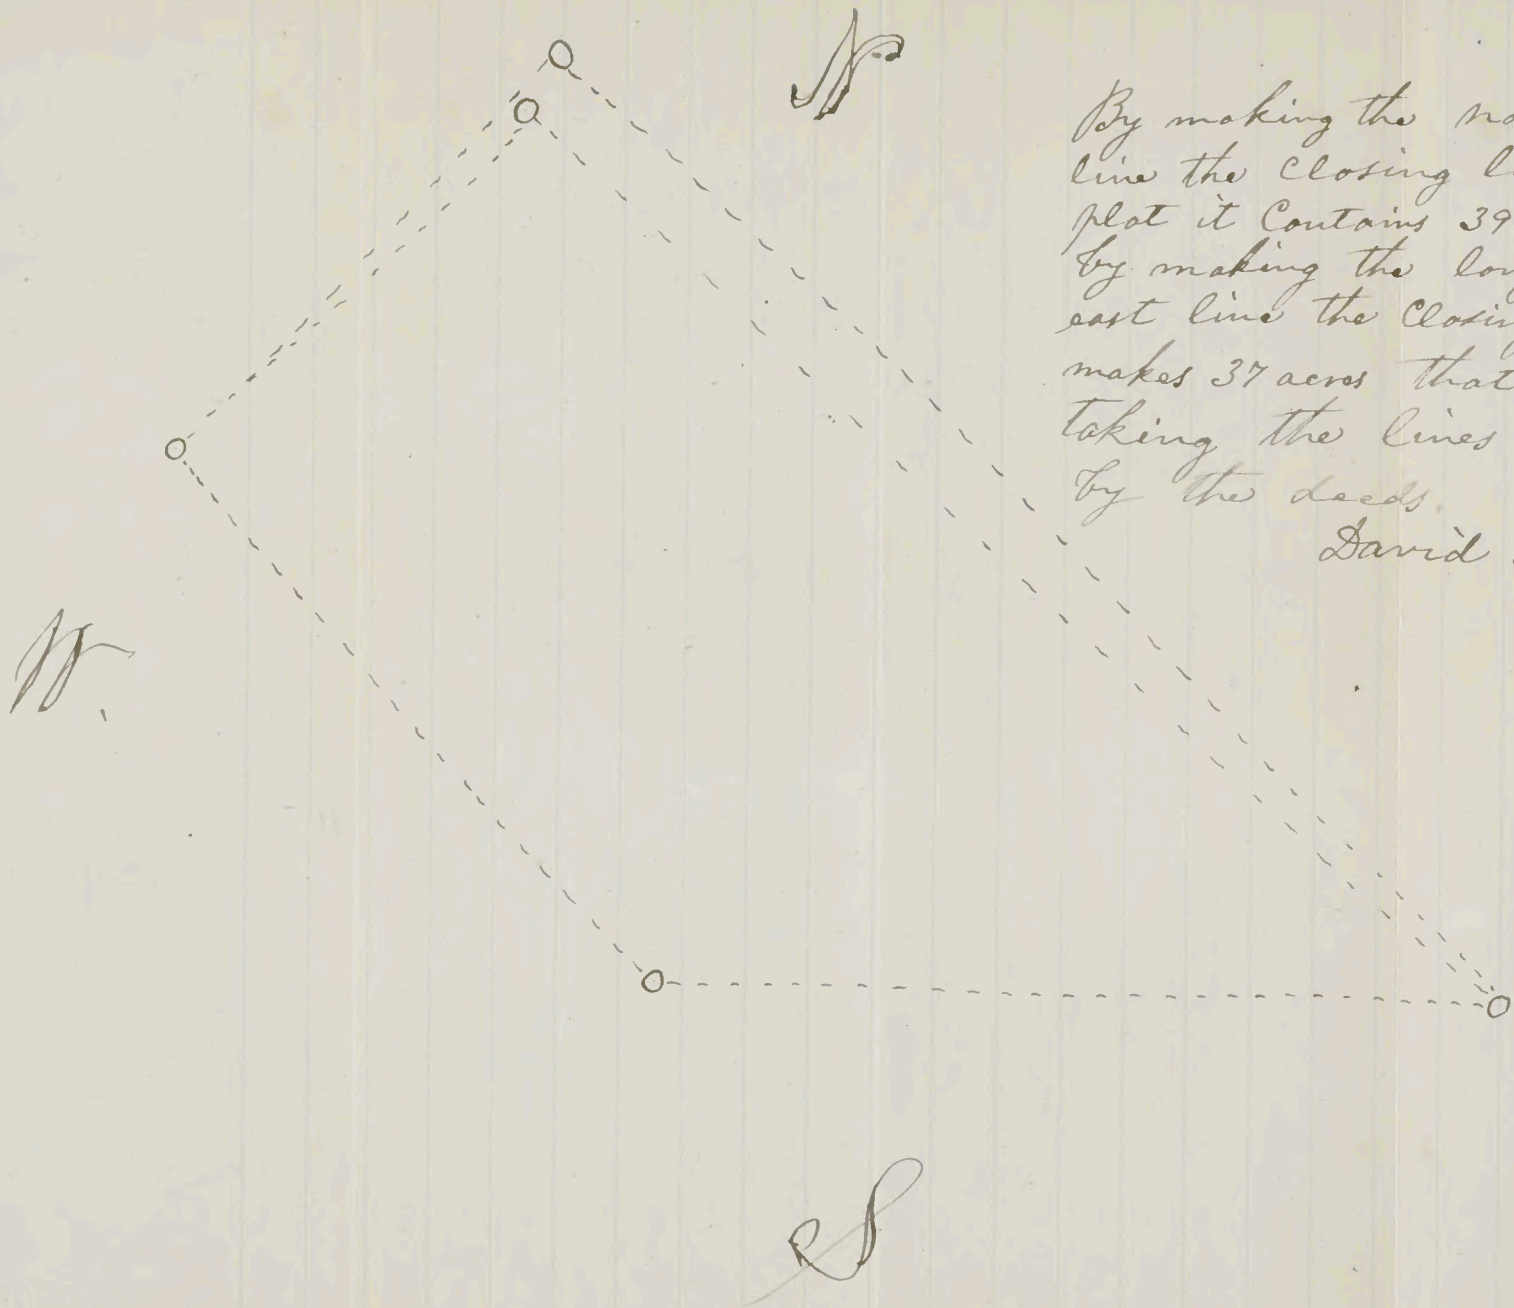 N
By making the no
line the closing l
plat it Contains 39
by making the lon
east line the Closin
makes 37 acres that
taking the lines
by the deeds.
David
W.
S